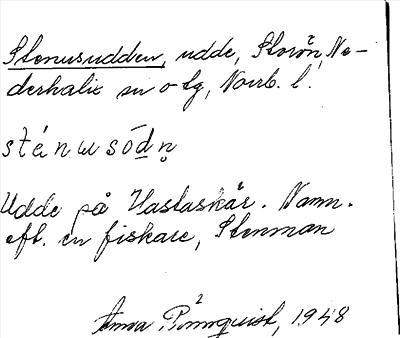 Stenusudden, udde, Storön, Ne-
derkalix sn o tg, Norrb. l.
sténusódn̥
Udde på Hastaskär. Namn.
eft. en fiskare, Stenman
Anna 1948